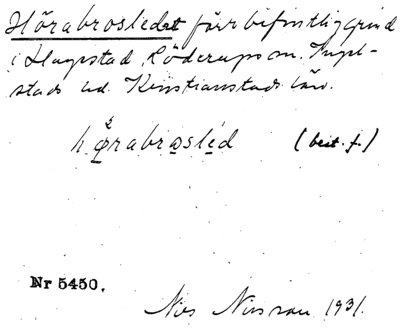 Hörabrosledet förr befintlig grind
i Hagestad, Löderup sn. Ingel-
stads hd. Kristianstads län.
hørabrasléd (best. f.)
Nr 5450.
Nils Nilsson 1931.